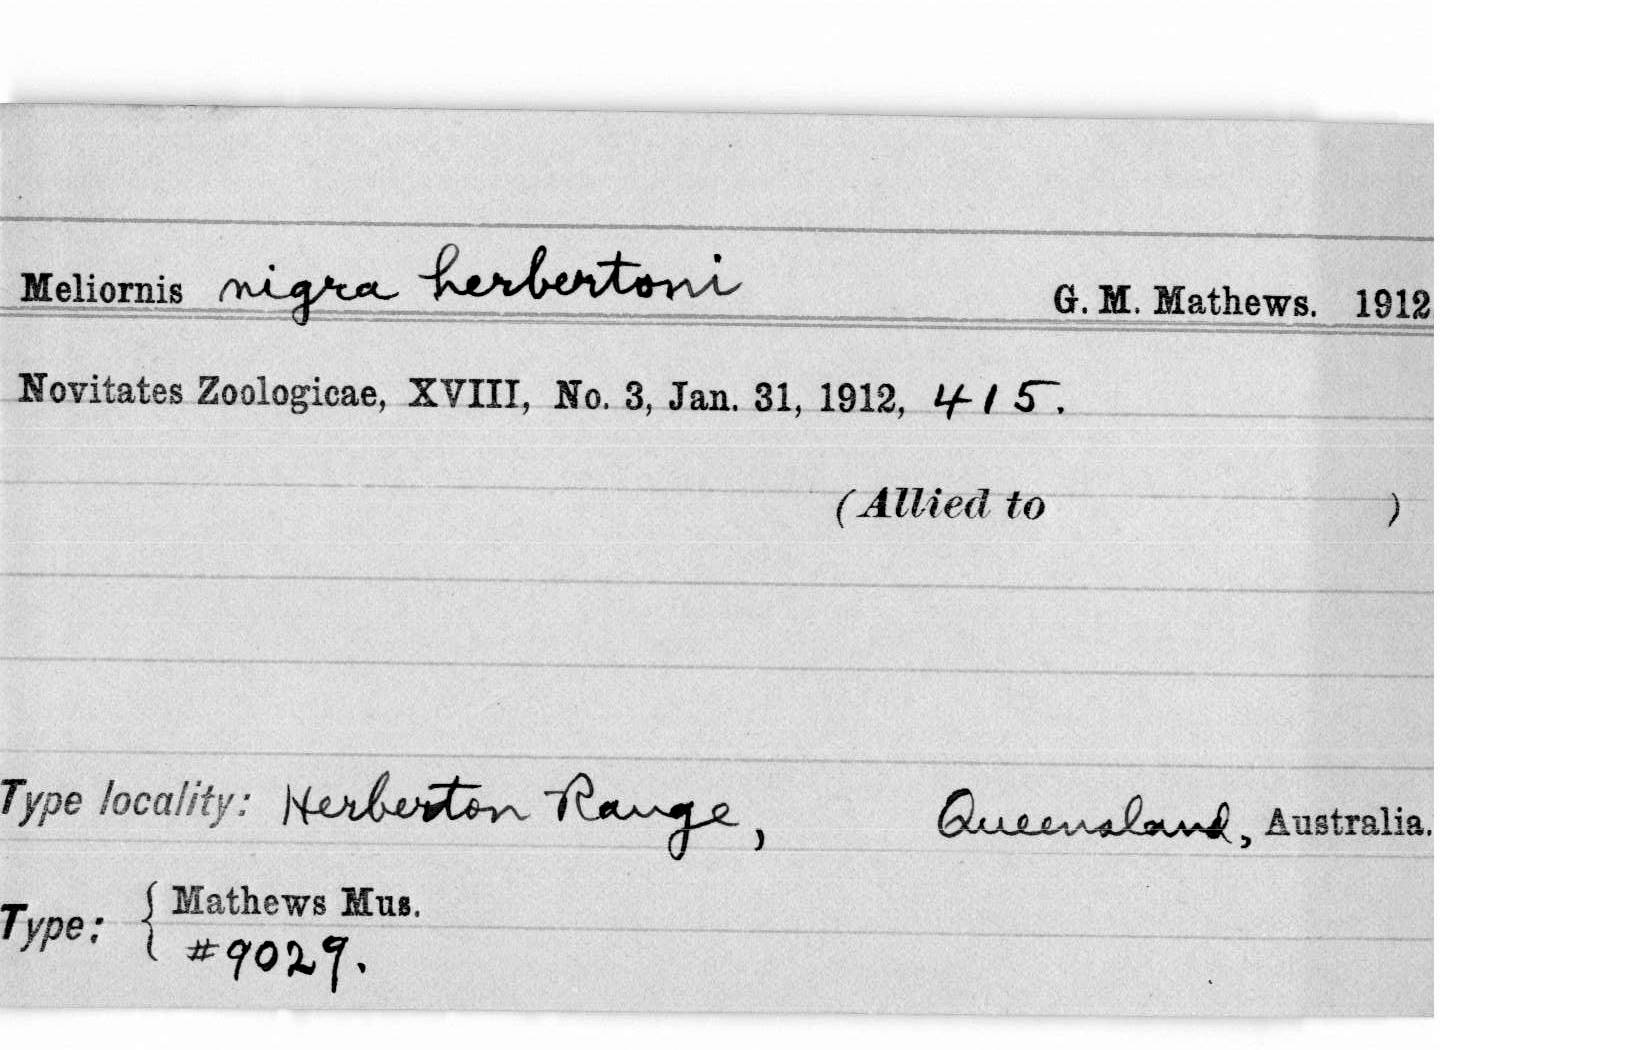 Meliornis nigra herbertoni G. M. Mathews. 1912
Novitates Zoologicae, XVIII, No. 3, Jan. 31, 1912, 415.
(Allied to )
Type locality: Herberton Range, Queensland, Australia.
Type: { Mathews Mus.
#9029.